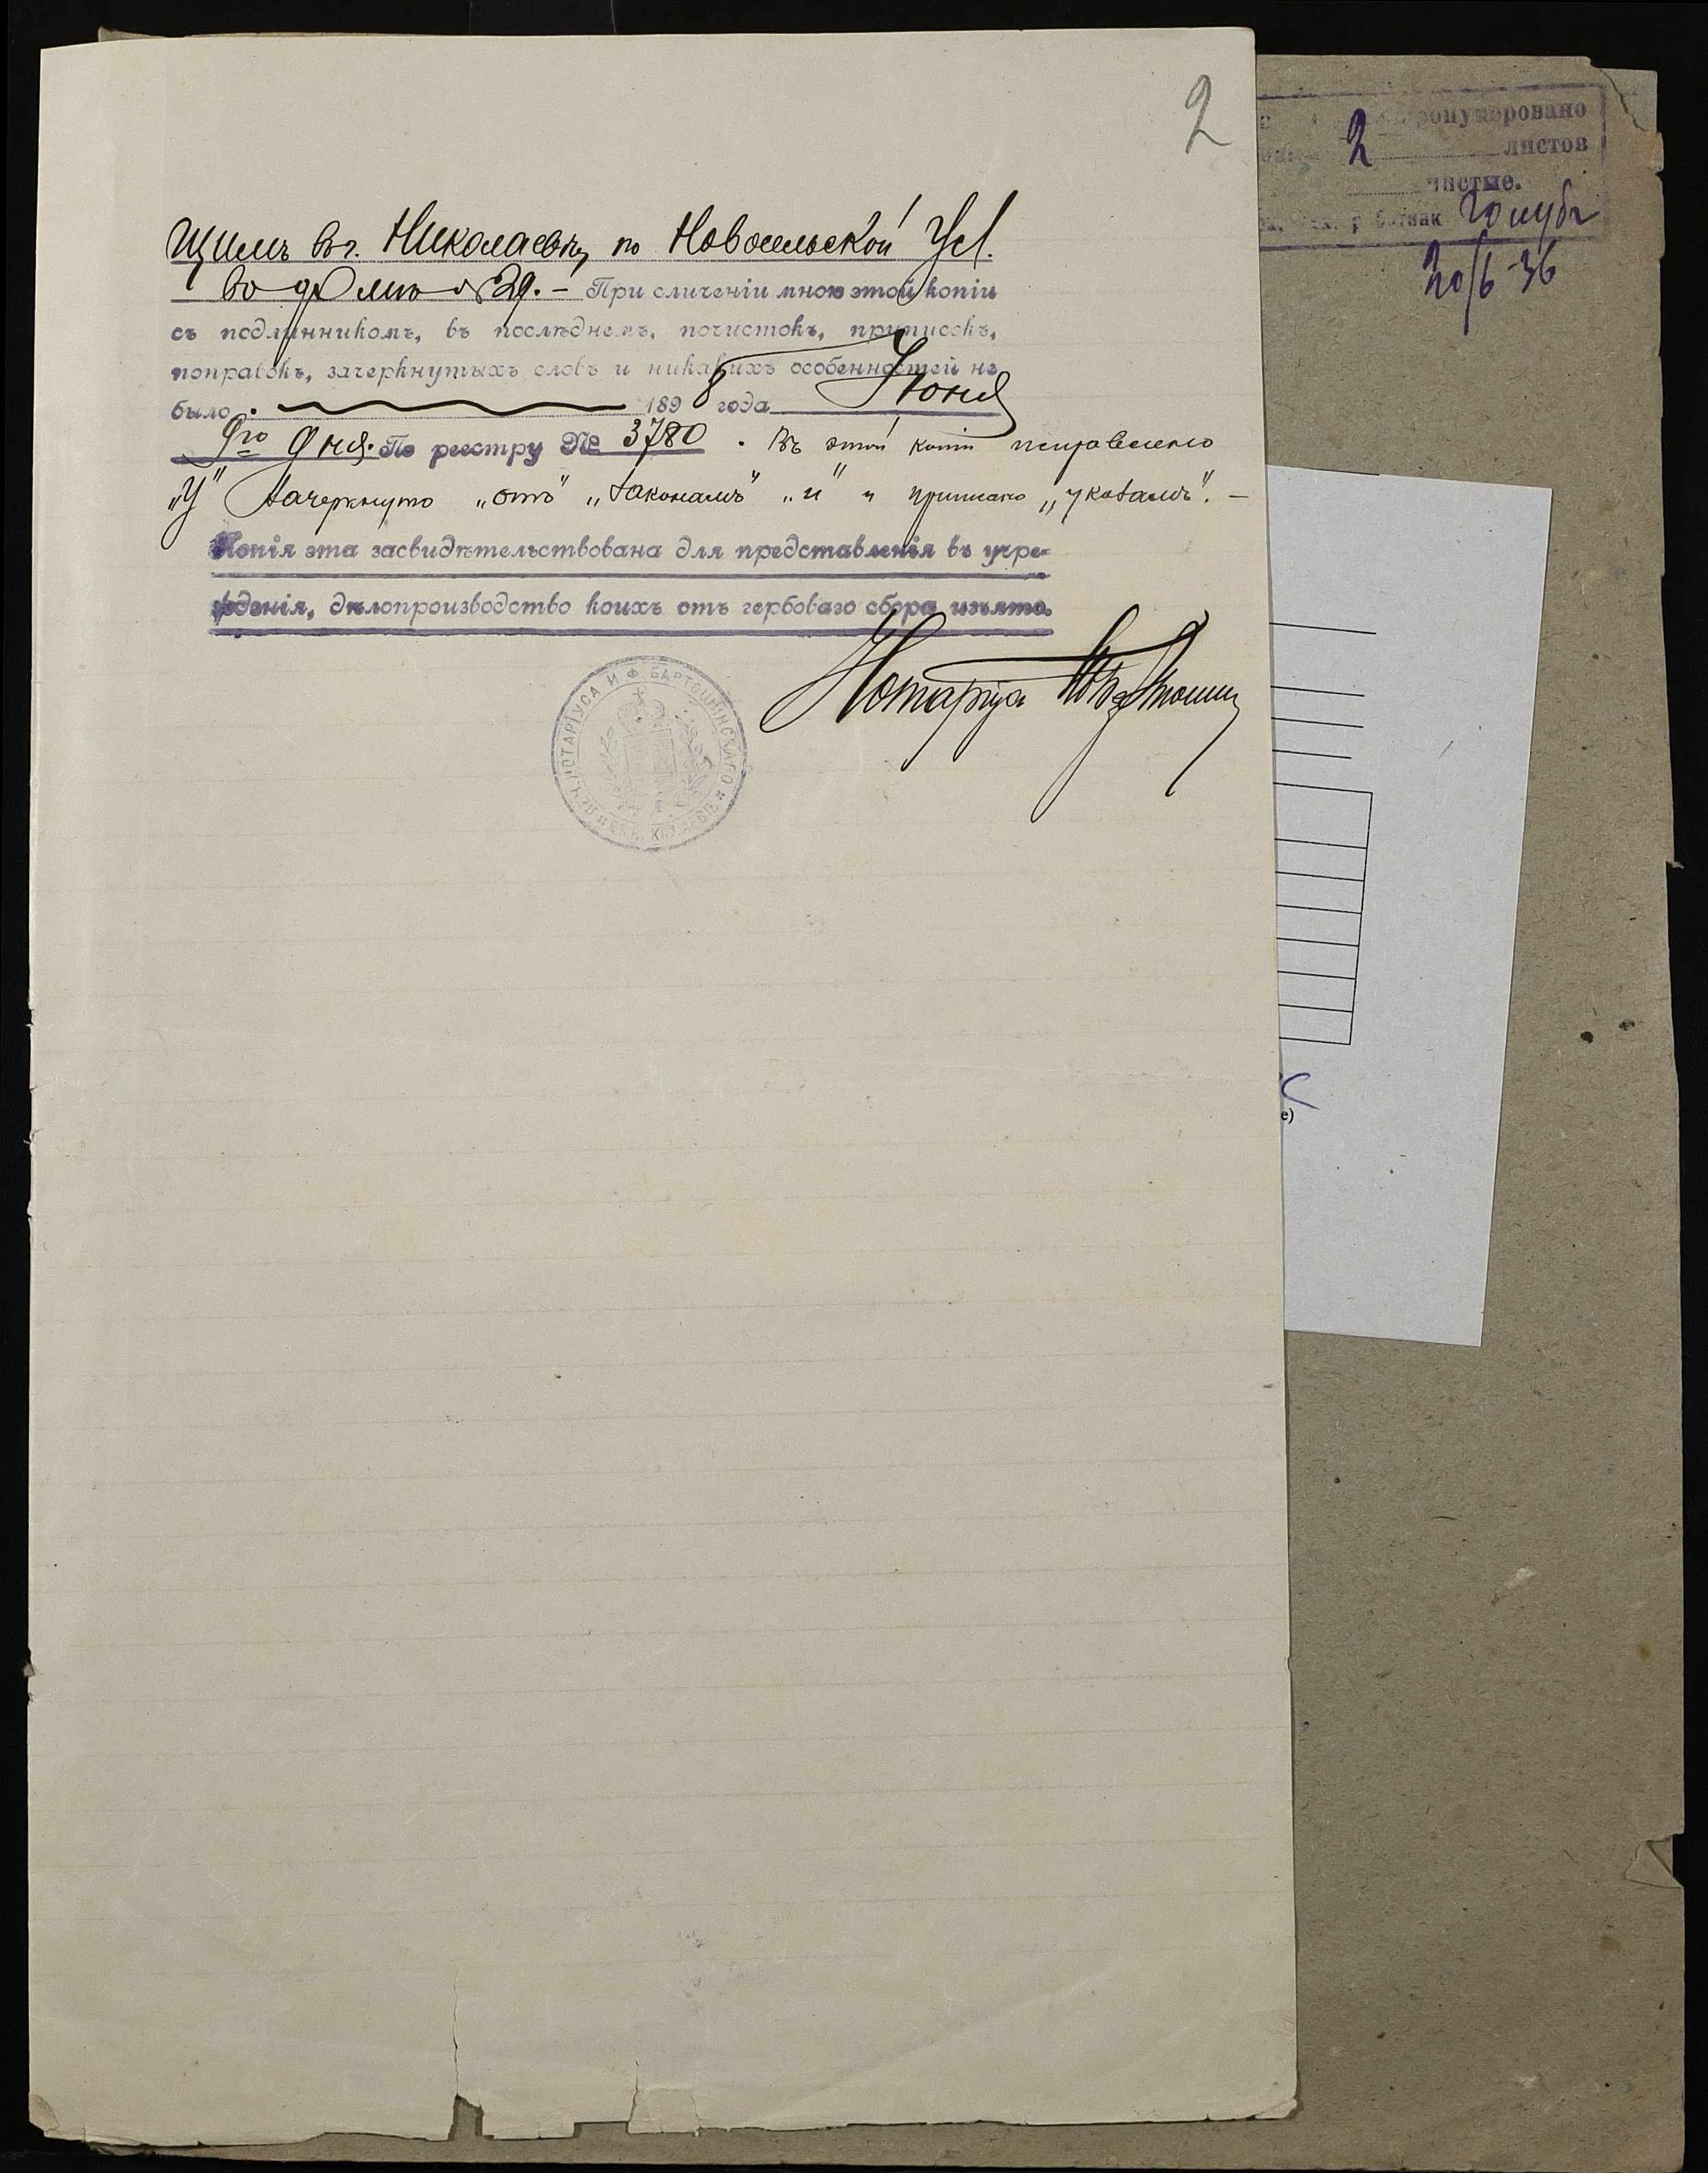 2
щимъ въ г. Николаевѣ, по Новосельской Ул.
во д. № 29. – При сличеніи мною этой копіи
съ подлинникомъ, въ послѣднемъ, почистокъ, приписокъ,
поправокъ, зачеркнутыхъ словъ и никакихъ особенностей не
было. 1898 года Іюня
9го дня. По реестру № 3780. Въ этой копіи исправлено
„У" зачеркнуто „отъ" „законамъ" „и" и приписано „указамъ". –
Копія эта засвидѣтельствована для представленія въ учре-
жденія, дѣлопроизводство коихъ отъ гербоваго сбора изъято.
Нотаріусъ
НОТАРІУСА И. Ф. БАРТОШИНСКАГО
пронумеровано
2 листов
чистые.
Голуб
20/6-36
е)